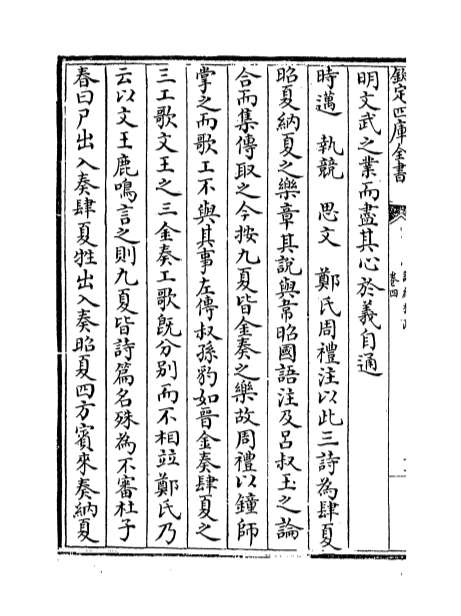 欽定四庫全書
卷四
明文武之業而盡其心於義自通
時邁　執競　思文　鄭氏周禮注以此三詩為肆夏
昭夏納夏之樂章其說與韋昭國語注及呂叔玉之論
合而集傳取之今按九夏皆金奏之樂故周禮以鐘師
掌之而歌工不與其事左傳叔孫豹如晉金奏肆夏之
三工歌文王之三金奏工歌既分別而不相竝鄭氏乃
云以文王鹿鳴言之則九夏皆詩篇名殊為不審杜子
春曰尸出入奏肆夏牲出入奏昭夏四方賓來奏納夏